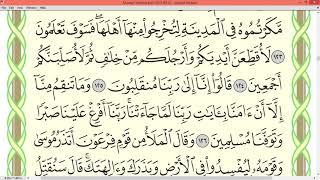 مَّكَرْتُمُوهُ فِى ٱلْمَدِينَةِ لِتُخْرِجُوا۟ مِنْهَآ أَهْلَهَا ۖ فَسَوْفَ تَعْلَمُونَ
١٢٣ لَأُقَطِّعَنَّ أَيْدِيَكُمْ وَأَرْجُلَكُم مِّنْ خِلَٰفٍ ثُمَّ لَأُصَلِّبَنَّكُمْ
أَجْمَعِينَ ١٢٤ قَالُوٓا۟ إِنَّآ إِلَىٰ رَبِّنَا مُنقَلِبُونَ ١٢٥ وَمَا تَنقِمُ مِنَّآ
إِلَّآ أَنْ ءَامَنَّا بِـَٔايَٰتِ رَبِّنَا لَمَّا جَآءَتْنَا ۚ رَبَّنَآ أَفْرِغْ عَلَيْنَا صَبْرًا
وَتَوَفَّنَا مُسْلِمِينَ ١٢٦ وَقَالَ ٱلْمَلَأُ مِن قَوْمِ فِرْعَوْنَ أَتَذَرُ مُوسَىٰ
وَقَوْمَهُۥ لِيُفْسِدُوا۟ فِى ٱلْأَرْضِ وَيَذَرَكَ وَءَالِهَتَكَ ۚ قَالَ سَنُقَتِّلُ